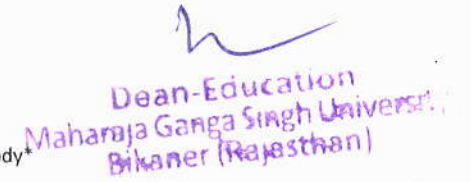 Dean-Education
Maharaja Ganga Singh Universi
dy* Bikaner (Rajasthan)